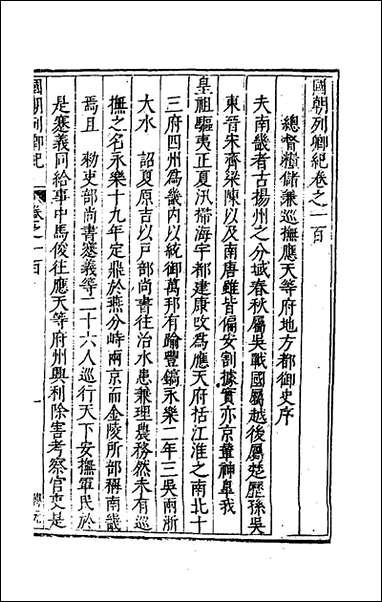 國朝列卿紀卷之一百
總督糧儲兼巡撫應天等府地方都御史序
夫南畿者古揚州之分域春秋屬吳戰國屬越後屬楚歷孫吳
東晉宋齊梁陳以及南唐雖皆偏安割據實亦京輦神皐我
皇祖驅夷正夏汛掃海宇都建康改為應天府括江淮之南北十
三府四州為畿內以統御萬邦有踰豐鎬永樂二年三吳兩浙
大水 詔夏原吉以戶部尚書往治水患兼理農務然未有巡
撫之名永樂十九年定鼎於燕分峙兩京而金陵所部稱南畿
焉且 勑吏部尚書蹇義等二十六人巡行天下安撫軍民於
是蹇義同給事中馬俊往應天等府州興利除害考察官吏是
國朝列卿紀 卷之一百 一